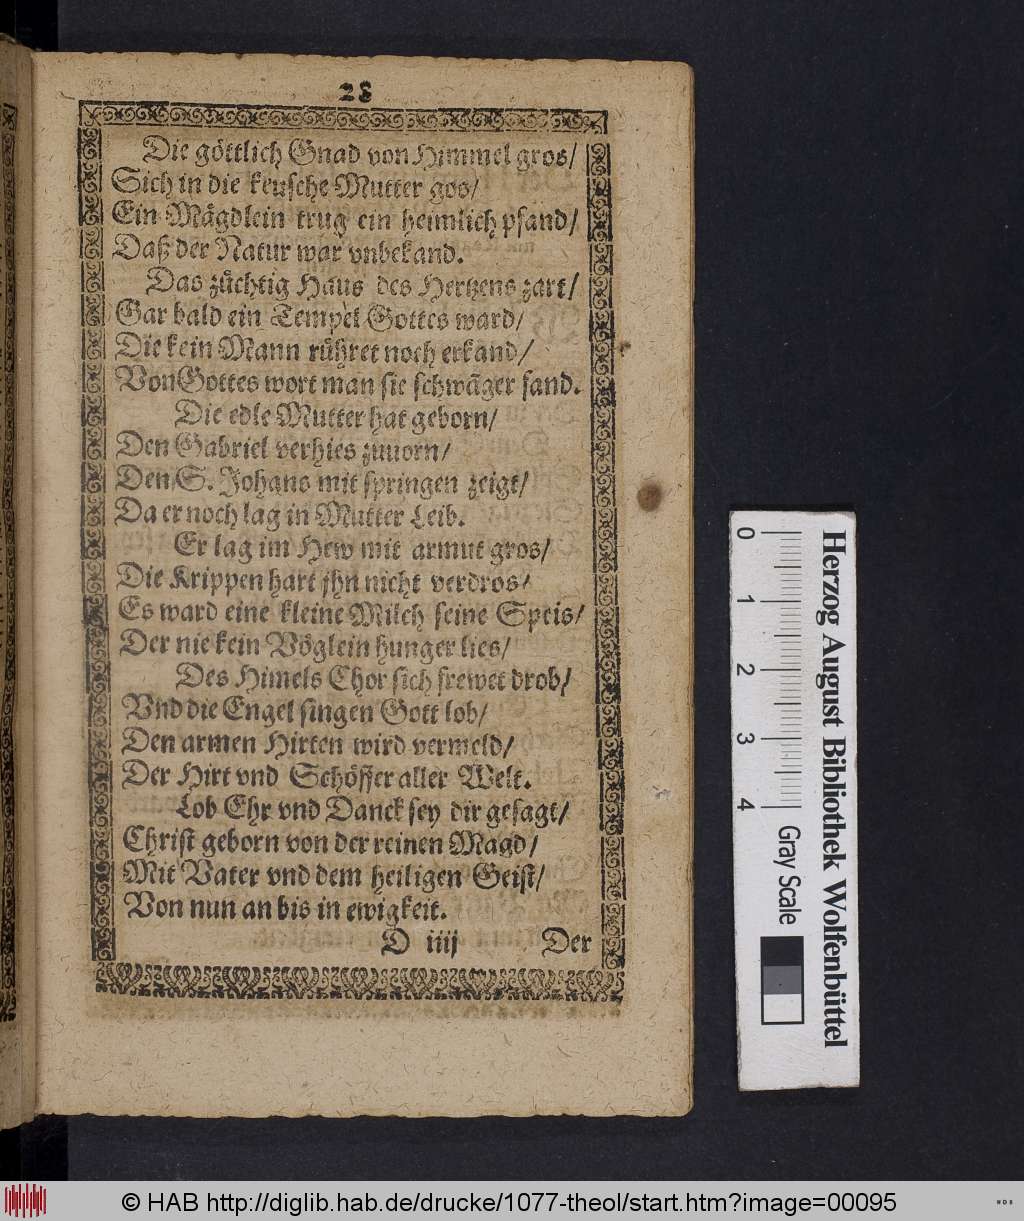 28
Die göttlich Gnad von Himmel gros/
Sich in die keusche Mutter gos/
Ein Mägdlein trug ein heimlich pfand/
Daß der Natur war vnbekand.
Das züchtig Haus des Hertzens zart/
Gar bald ein Tempel Gottes ward/
Die kein Mann rühret noch erkand/
Von Gottes wort man sie schwãger fand.
Die edle Mutter hat geborn/
Den Gabriel verhies zuuorn/
Den S. Johans mit springen zeigt/
Da er noch lag in Mutter Leib.
Er lag im Hew mit armut gros/
Die Krippen hart jhn nicht verdros/
Es ward eine kleine Milch seine Speis/
Der nie kein Vöglein hunger lies/
Des Himels Chor sich frewet drob/
Vnd die Engel singen Gott lob/
Den armen Hirten wird vermeld/
Der Hirt vnd Schöffer aller Welt.
Lob Ehr vnd Danck sey dir gesagt/
Christ geborn von der reinen Magd/
Mit Vater vnd dem heiligen Geist/
Von nun an bis in ewigkeit.
D iiij Der
Herzog August Bibliothek Wolfenbüttel
0 1 2 3 4 Gray Scale
© HAB http://diglib.hab.de/drucke/1077-theol/start.htm?image=00095